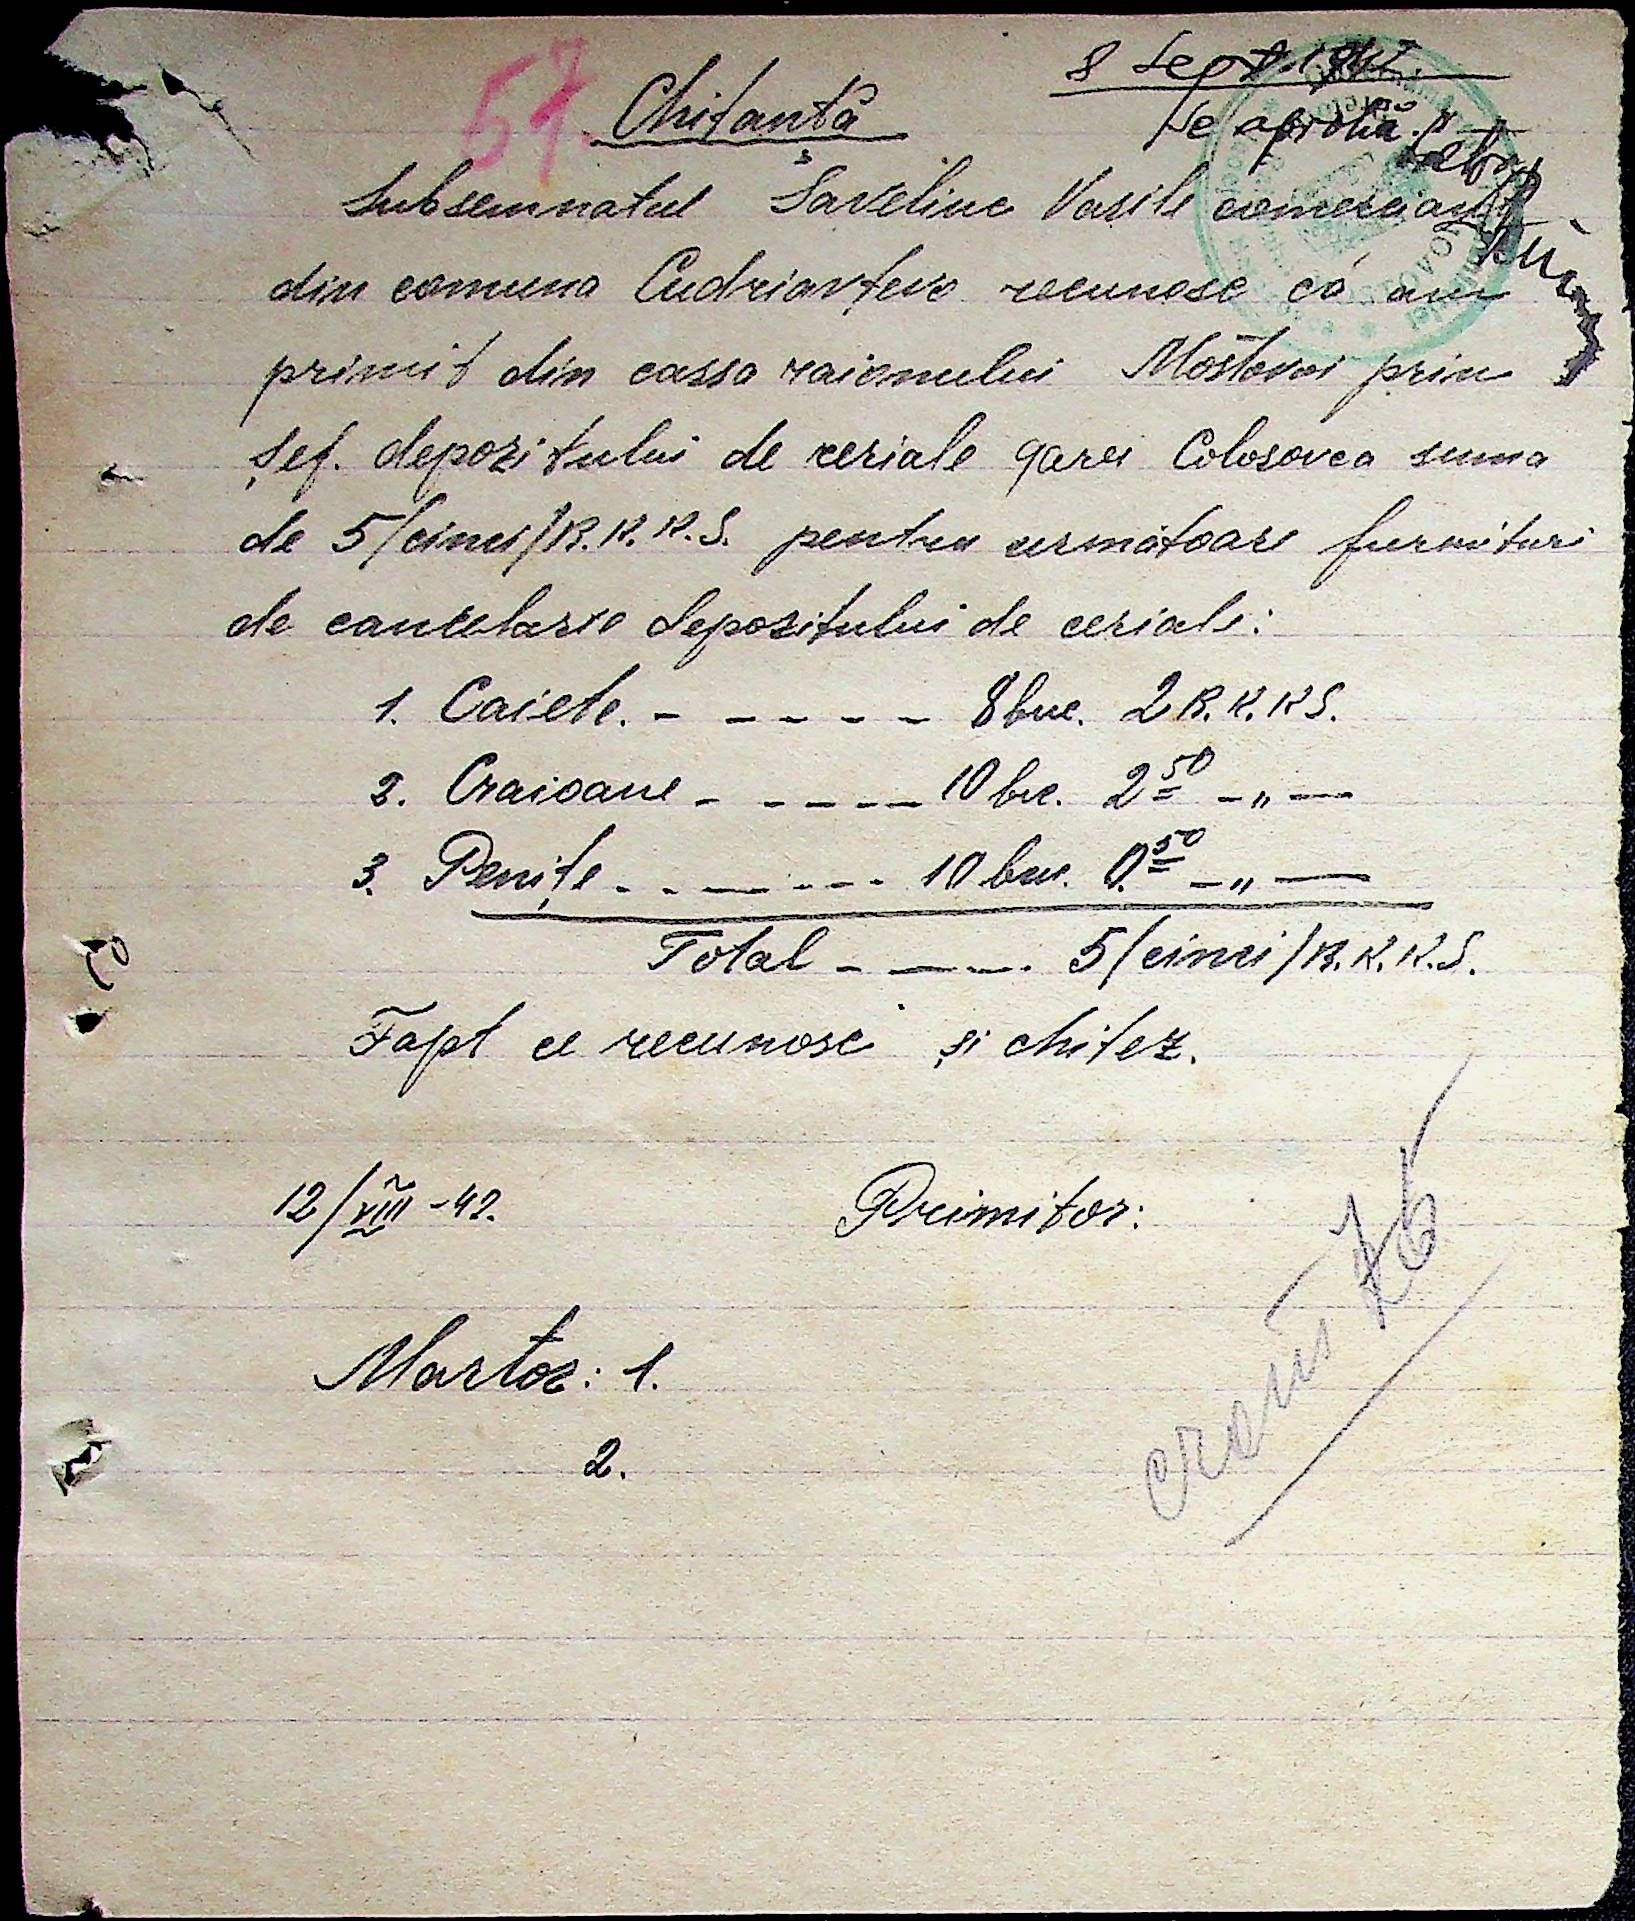 57.
8 Sept. 1942.
Se aprobă.
Chitanță
Subsemnatul Saveliuc Vasile comerciant
din comuna Cudriavțevo recunosc că am
primit din cassa raionului Mostovoi prin
șef. depozitului de ceriale garei Colosovca suma
de 5/cinci/R.K.K.S. pentru urmatoare furnituri
de cancelarie depozitului de ceriale:
1. Caiete. - - - - - - 8 buc. 2 R.K.K.S.
2. Craioane - - - - - 10 buc. 2 50 - „ -
3. Penițe - - - - - - 10 buc. 0. 50 - „ -
Total - - - . 5/cinci/R.K.K.S.
Fapt ce recunosc și chitez.
12/VIII -42. Primitor:
Martor: 1.
2.